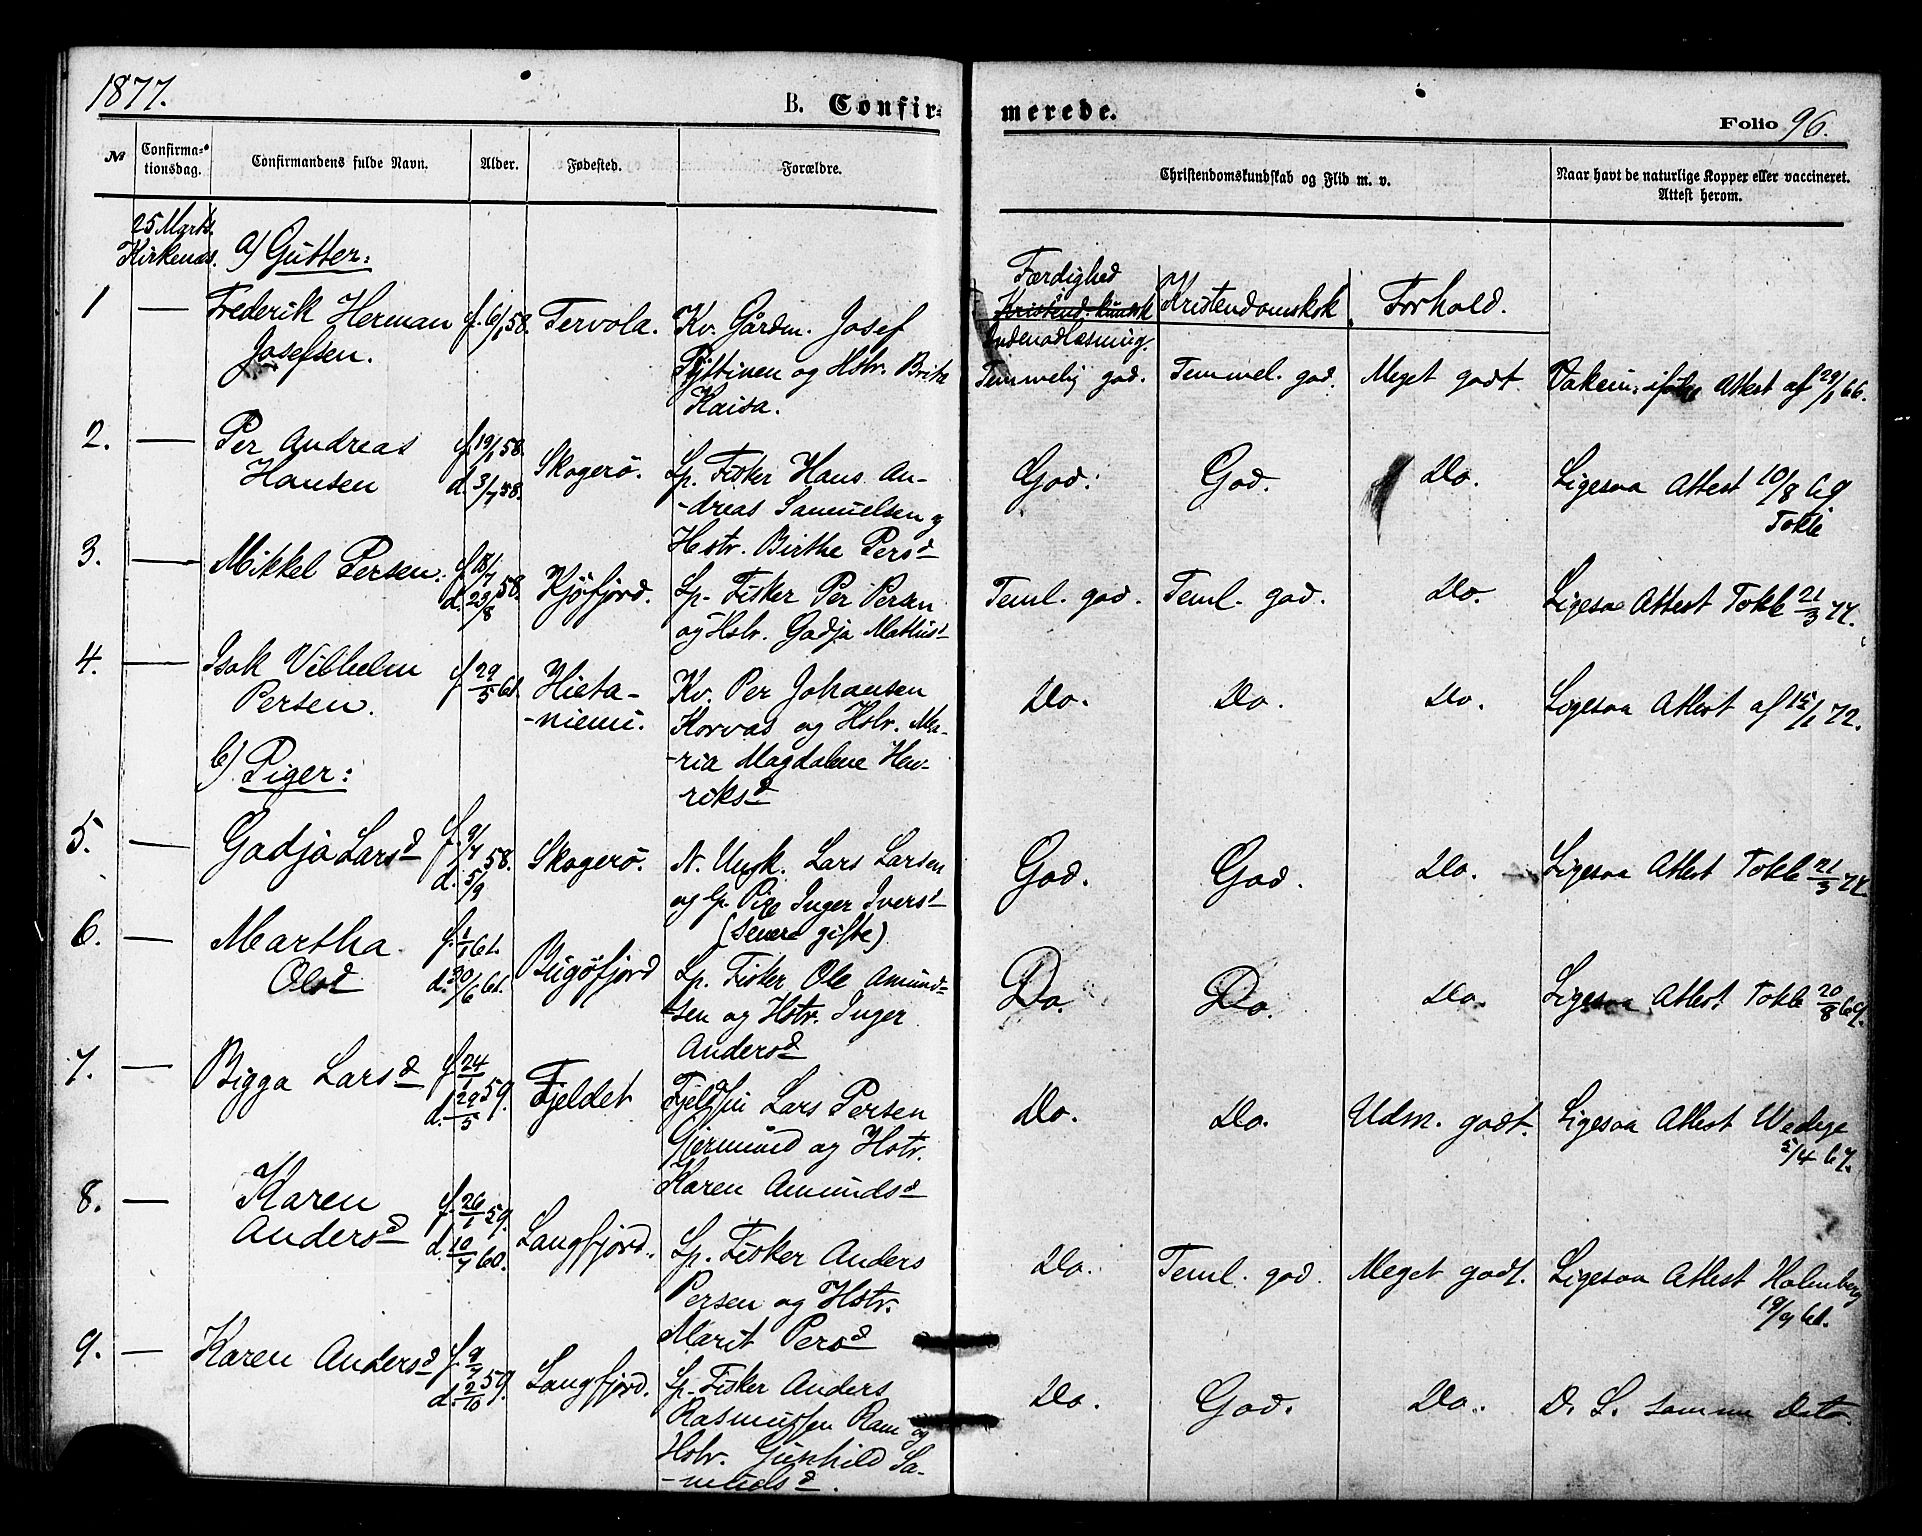 1877.
B. Confirmerede.
Folio 96.
№
Confirmationsdag.
Confirmandens fulde Navn.
Alder.
Fødested.
Forældre.
Christendomskundskab og Flid m. v.
Naar havt de naturlige Kopper eller vaccineret.
Attest herom.
25 Marts.
Kirkenæs.
a) Gutter:
Færdighed
Kristend.kundsk
Indenadlæsning.
Kristendomskdsk.
Forhold.
1 — Frederik Herman f. 6/1 58. Tervola. Kv. Gårdm. Josef
Josefsen.
og Hstr. Brita
Kaisa.
Temmelig god. Temmel. god. Meget godt. Vakcin. ifølge Attest af 29/1 66.
2. — Per Andreas f. 19/1 58. Skogerö. Sp. Fisker Hans An-
Hansen d. 3/7 58. -dreas Samuelsen og
Hstr. Birthe Persd
God. God. Do. Ligesaa Attest 10/8 69
Tokle
3. — Mikkel Persen. f. 18/7 58. Kjöfjord. Sp. Fisker Per Persen
d. 29/8 og Hstr. Gadja Mathisd
Teml. god. Teml. god. Do. Ligesaa Attest Tokle 21/3 77.
4. — Isak Vilhelm f. 29/5 61. Hieta- Kv. Per Johansen
Persen. -niemi. Korvas og Hstr. Ma-
-ria Magdalene Hen-
riksd
Do. Do. Do. Ligesaa Attest af 15/1 72.
b) Piger:
5. — Gadja Larsd f. 9/7 58. Skogerö. N. Ungk. Lars Larsen
d. 5/9 og G. Pige Inger Iversd
(senere gifte)
God. God. Do. Ligesaa Attest Tokle 21/3 77.
6. — Martha f. 1/1 61. Bugöfjord Sp. Fisker Ole Amund-
Olsd d. 30/6 61. sen og Hstr. Inger
Andersd
Do. Do. Do. Ligesaa Attest Tokle 20/8 69.
7. — Bigga Larsd f. 24/1 59. Fjeldet Fjeldfin Lars Persen
d. 29/5 Gjermund og Hstr.
Karen Amundsd
Do. Do. Udm. godt. Ligesaa Attest Wedege
5/4 67.
8. — Karen f. 26/1 59. Langfjord. Sp. Fisker Anders
Andersd d. 10/7 60. Persen og Hstr.
Marit Persd
Do. Teml. god. Meget godt. Ligesaa Attest Holmberg
19/9 61.
9. — Karen Andersd f. 9/7 59. Langfjord. Sp. Fisker Anders
d. 2/10 Rasmussen Ram og
Hstr. Gunhild Sa-
-muelsd.
Do. God. Do. D. L. samme Dato.